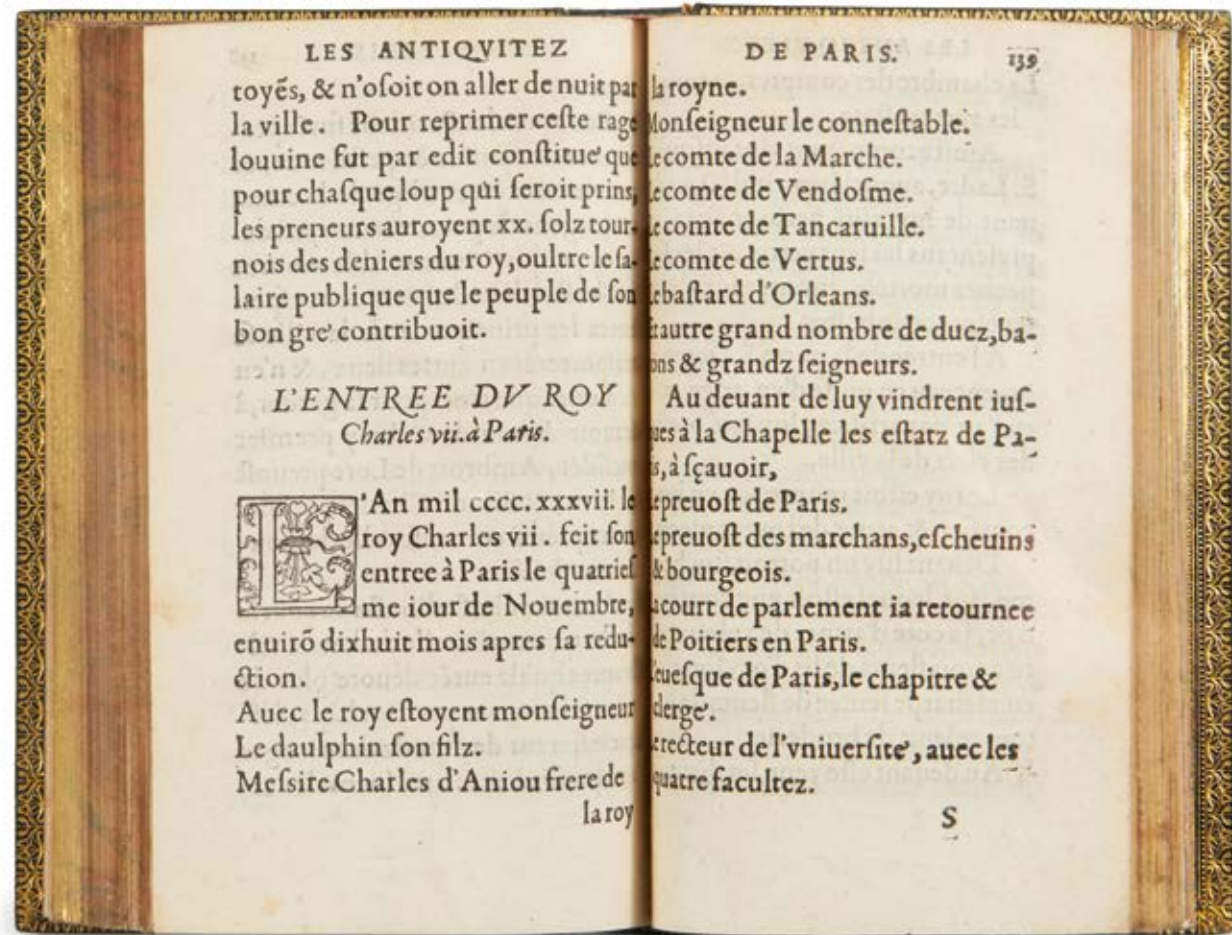 LES ANTIQVITEZ
toyẽs, & n'oſoit on aller de nuit par
la ville. Pour reprimer ceſte rage
louuine fut par edit conſtitue' que
pour chaſque loup qui ſeroit prins,
les preneurs auroyent xx. ſolz tour-
nois des deniers du roy, oultre le ſa-
laire publique que le peuple de ſon
bon gre' contribuoit.
L'ENTREE DV ROY
Charles vii. à Paris.
L'An mil cccc. xxxvii. le
roy Charles vii. feit ſon
entree à Paris le quatrieſ
me iour de Nouembre,
enuirõ dixhuit mois apres ſa redu-
ction.
Auec le roy eſtoyent monſeigneur
Le daulphin ſon filz.
Meſsire Charles d'Aniou frere de
la roy
DE PARIS. 139
la royne.
Monſeigneur le conneſtable.
Le comte de la Marche.
Le comte de Vendoſme.
Le comte de Tancaruille.
Le comte de Vertus.
Le baſtard d'Orleans.
Et autre grand nombre de ducz, ba-
rons & grandz ſeigneurs.
Au deuant de luy vindrent iuſ-
ques à la Chapelle les eſtatz de Pa-
ris, à ſçauoir,
Le preuoſt de Paris.
Le preuoſt des marchans, eſcheuins
& bourgeois.
La court de parlement ia retournee
de Poitiers en Paris.
L'eueſque de Paris, le chapitre &
clerge'.
Le recteur de l'vniuerſite', auec les
quatre facultez.
S